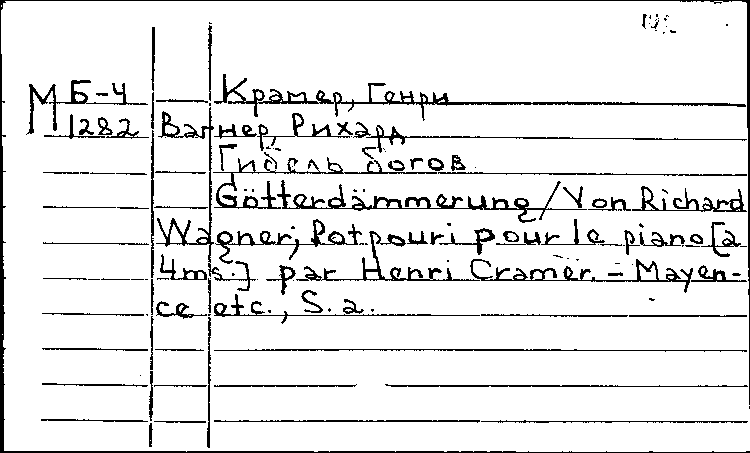 М Б-4 Крамер, Генри
1282 Вагнер, Рихард
Гибель богов
Götterdämmerung / Von Richard
Wagner; Potpouri pour le piano [a
4ms.] par Henri Cramer. - Mayen-
ce etc., S. a.